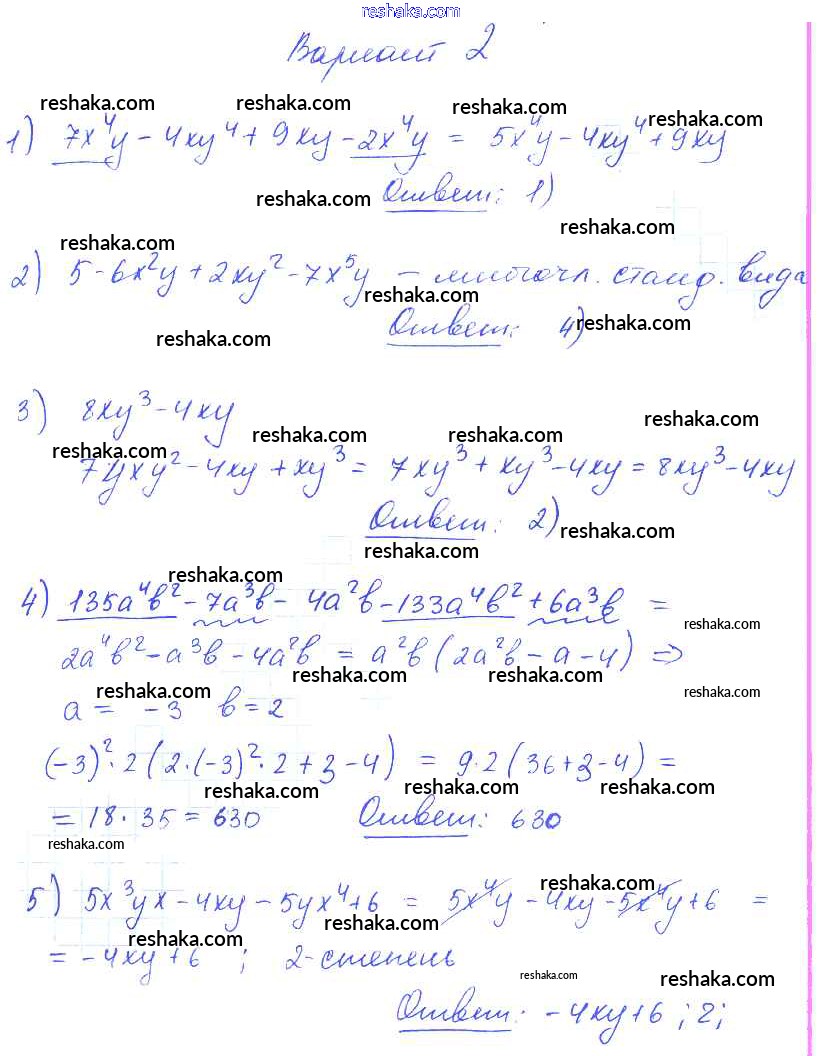 reshaka.com
Вариант 2
reshaka.com reshaka.com reshaka.com reshaka.com
1) 7x⁴y - 4xy⁴ + 9xy - 2x⁴y = 5x⁴y - 4xy⁴ + 9xy
reshaka.com
Ответ: 1)
reshaka.com
reshaka.com
2) 5 - 6x²y + 2xy² - 7x⁵y – многочл. станд. вида
reshaka.com
Ответ: 4)
reshaka.com
reshaka.com
3) 8xy³ - 4xy
reshaka.com
reshaka.com reshaka.com reshaka.com
7yxy² - 4xy + xy³ = 7xy³ + xy³ - 4xy = 8xy³ - 4xy
Ответ: 2)
reshaka.com
reshaka.com
reshaka.com
4) 135a⁴b² - 7a³b - 4a²b - 133a⁴b² + 6a³b =
reshaka.com
2a⁴b² - a³b - 4a²b = a²b (2a²b - a - 4) ⇒
reshaka.com reshaka.com reshaka.com
reshaka.com
a = -3 b = 2
(-3)²·2 (2·(-3)²·2 + 3 - 4) = 9·2 (36 + 3 - 4) =
reshaka.com reshaka.com reshaka.com
= 18·35 = 630 Ответ: 630
reshaka.com
reshaka.com
5) 5x³yx - 4xy - 5yx⁴ + 6 = 5x⁴y - 4xy - 5x⁴y + 6 =
reshaka.com
reshaka.com
= -4xy + 6 ; 2-степень
reshaka.com reshaka.com
Ответ: -4xy + 6 ; 2;